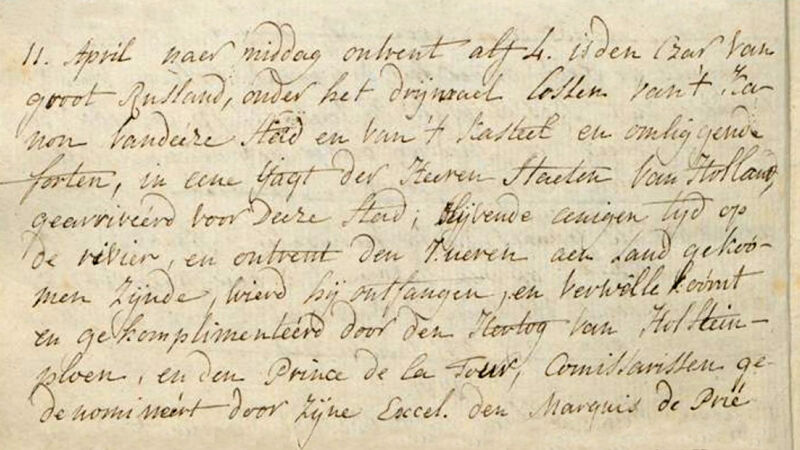 11. April naer middag ontrent alf 4. is den Czar van
groot Rusland, onder het drijmael lossen van't Ka-
non van deéze Stad en van't Kasteel en omliggende
forten, in eene Jagt der Heeren Staeten van Holland,
gearriveérd voor Deeze Stad; blijvende eenigen tyd op
de rivier, en ontrent den 7. ueren aen Land gekoó-
men zynde, wierd hij ontfangen, en verwelle koómt
en gekomplimenteérd door den Hertog van Holstein-
ploen, en den Prince de la Tour, Comissarissen ge-
denomineért door Zyne Excel. den Marquis de Prié